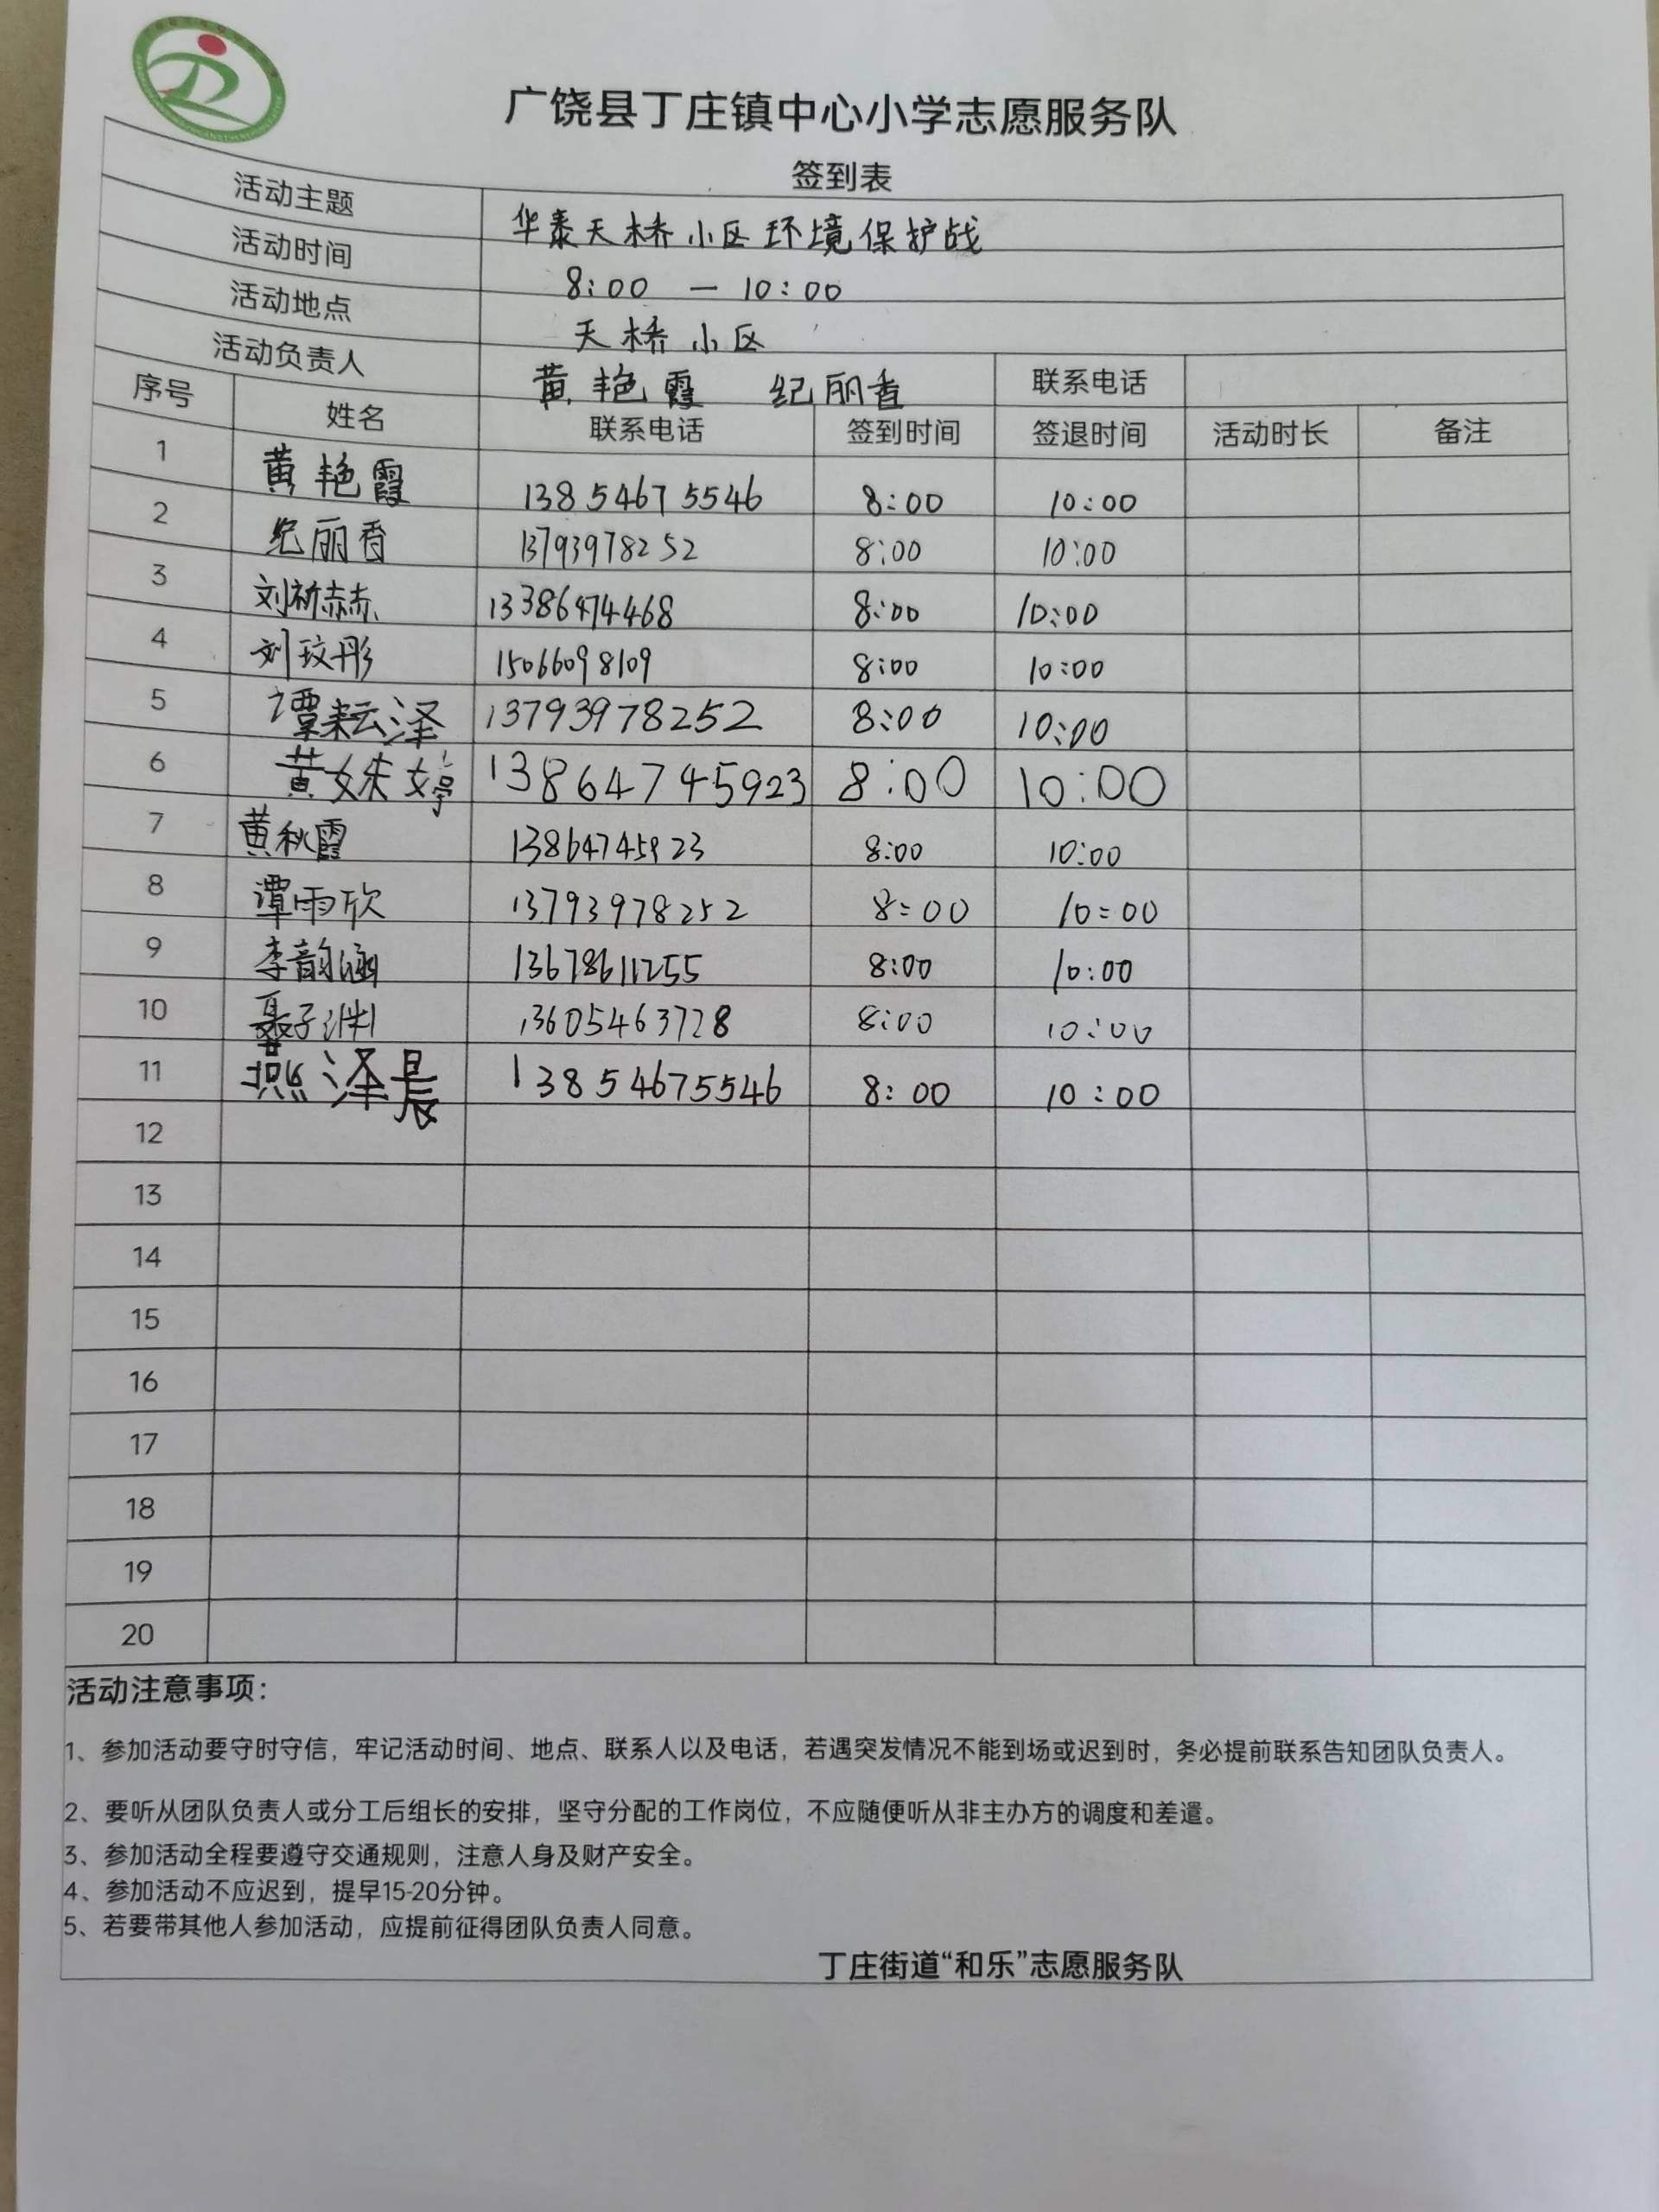 广饶县丁庄镇中心小学志愿服务队
签到表
活动主题 华泰天桥小区环境保护战
活动时间 8:00 — 10:00
活动地点 天桥小区
活动负责人 黄艳霞 纪丽香 联系电话
序号 姓名 联系电话 签到时间 签退时间 活动时长 备注
1 黄艳霞 13854675546 8:00 10:00
2 纪丽香 13793978252 8:00 10:00
3 刘祈赫 13386474468 8:00 10:00
4 刘玟彤 15066098109 8:00 10:00
5 谭耘泽 13793978252 8:00 10:00
6 黄姝婷 13864745923 8:00 10:00
7 黄秋霞 13864745923 8:00 10:00
8 谭雨欣 13793978252 8:00 10:00
9 李韵涵 13678611255 8:00 10:00
10 聂子 13605463728 8:00 10:00
11 燕泽晨 13854675546 8:00 10:00
12
13
14
15
16
17
18
19
20
活动注意事项：
1、参加活动要守时守信，牢记活动时间、地点、联系人以及电话，若遇突发情况不能到场或迟到时，务必提前联系告知团队负责人。
2、要听从团队负责人或分工后组长的安排，坚守分配的工作岗位，不应随便听从非主办方的调度和差遣。
3、参加活动全程要遵守交通规则，注意人身及财产安全。
4、参加活动不应迟到，提早15-20分钟。
5、若要带其他人参加活动，应提前征得团队负责人同意。
丁庄街道“和乐”志愿服务队